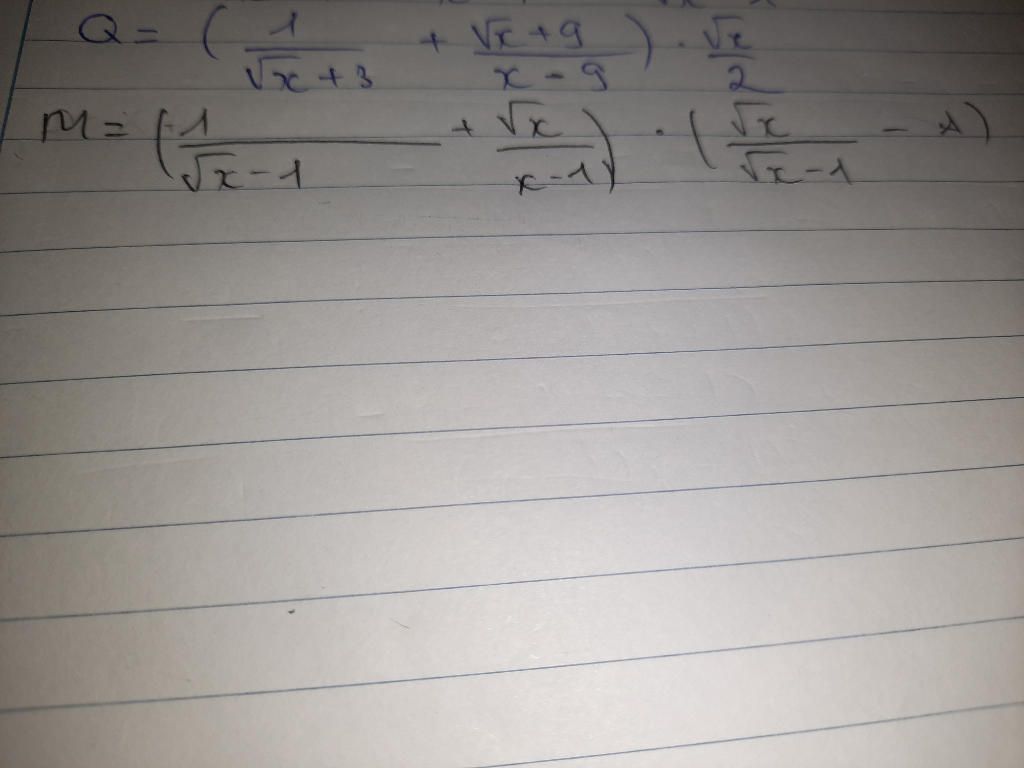 Q = ( 1/(√x + 3) + (√x + 9)/(x - 9) ) · √x/2
M = ( 1/(√x - 1) + √x/(x - 1) ) · ( √x/(√x - 1) - 1 )